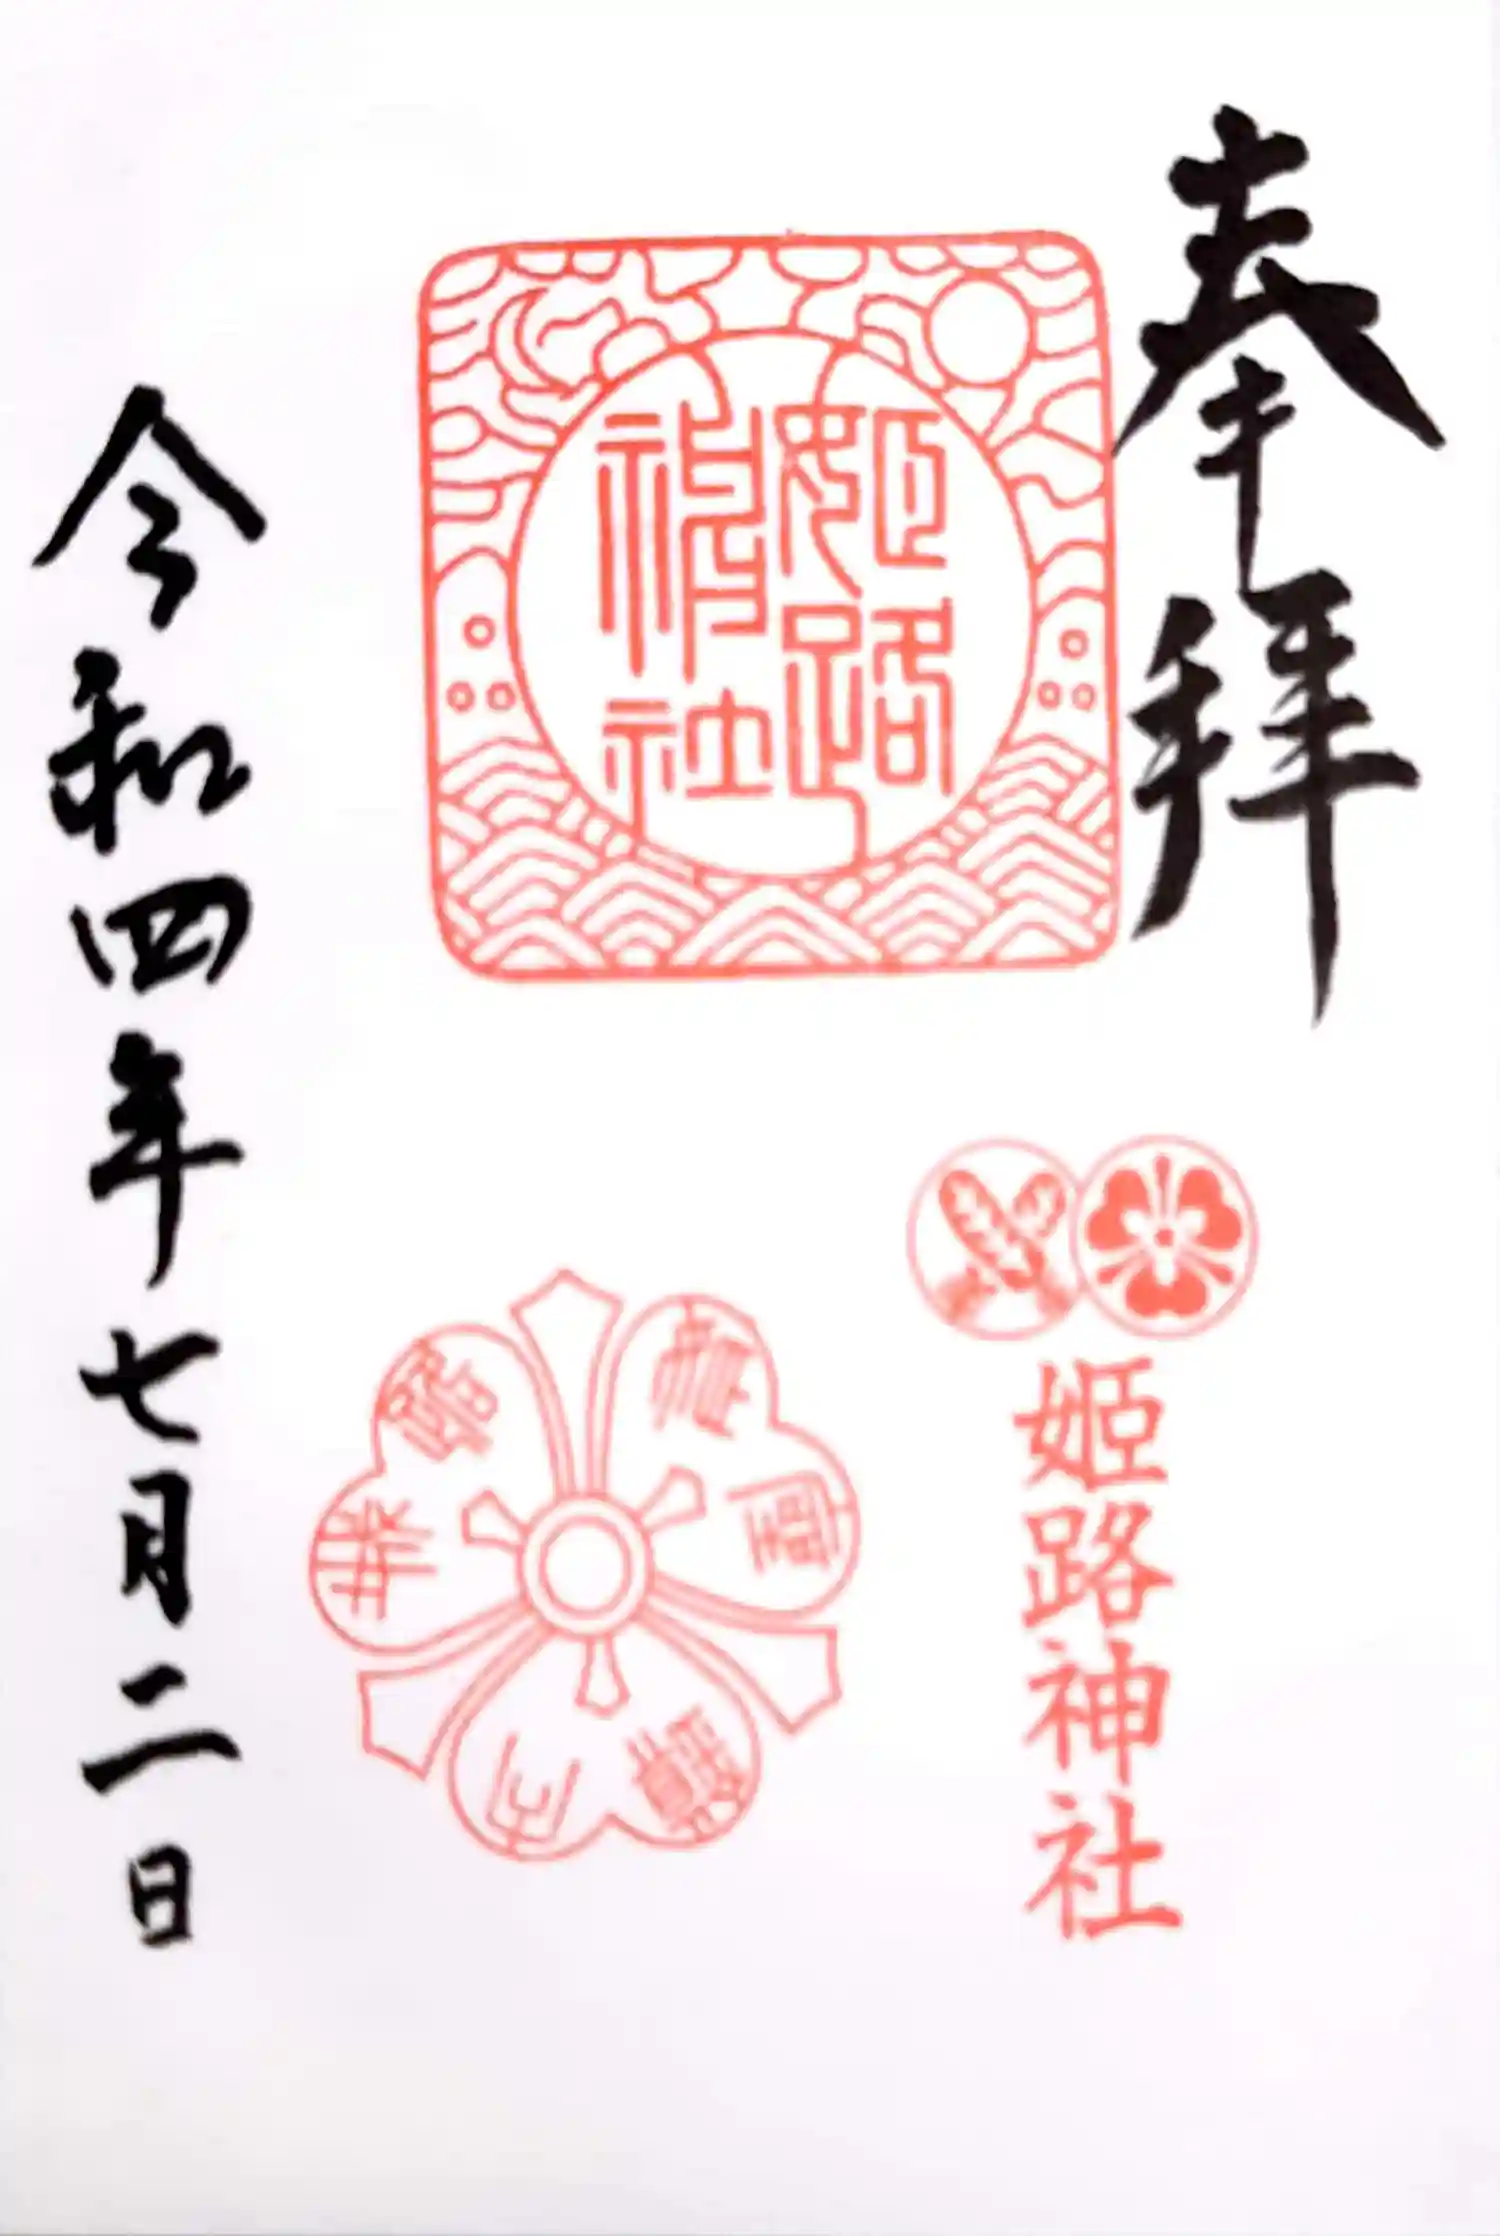 奉拝
姫路
神社
姫路神社
令和四年七月二日